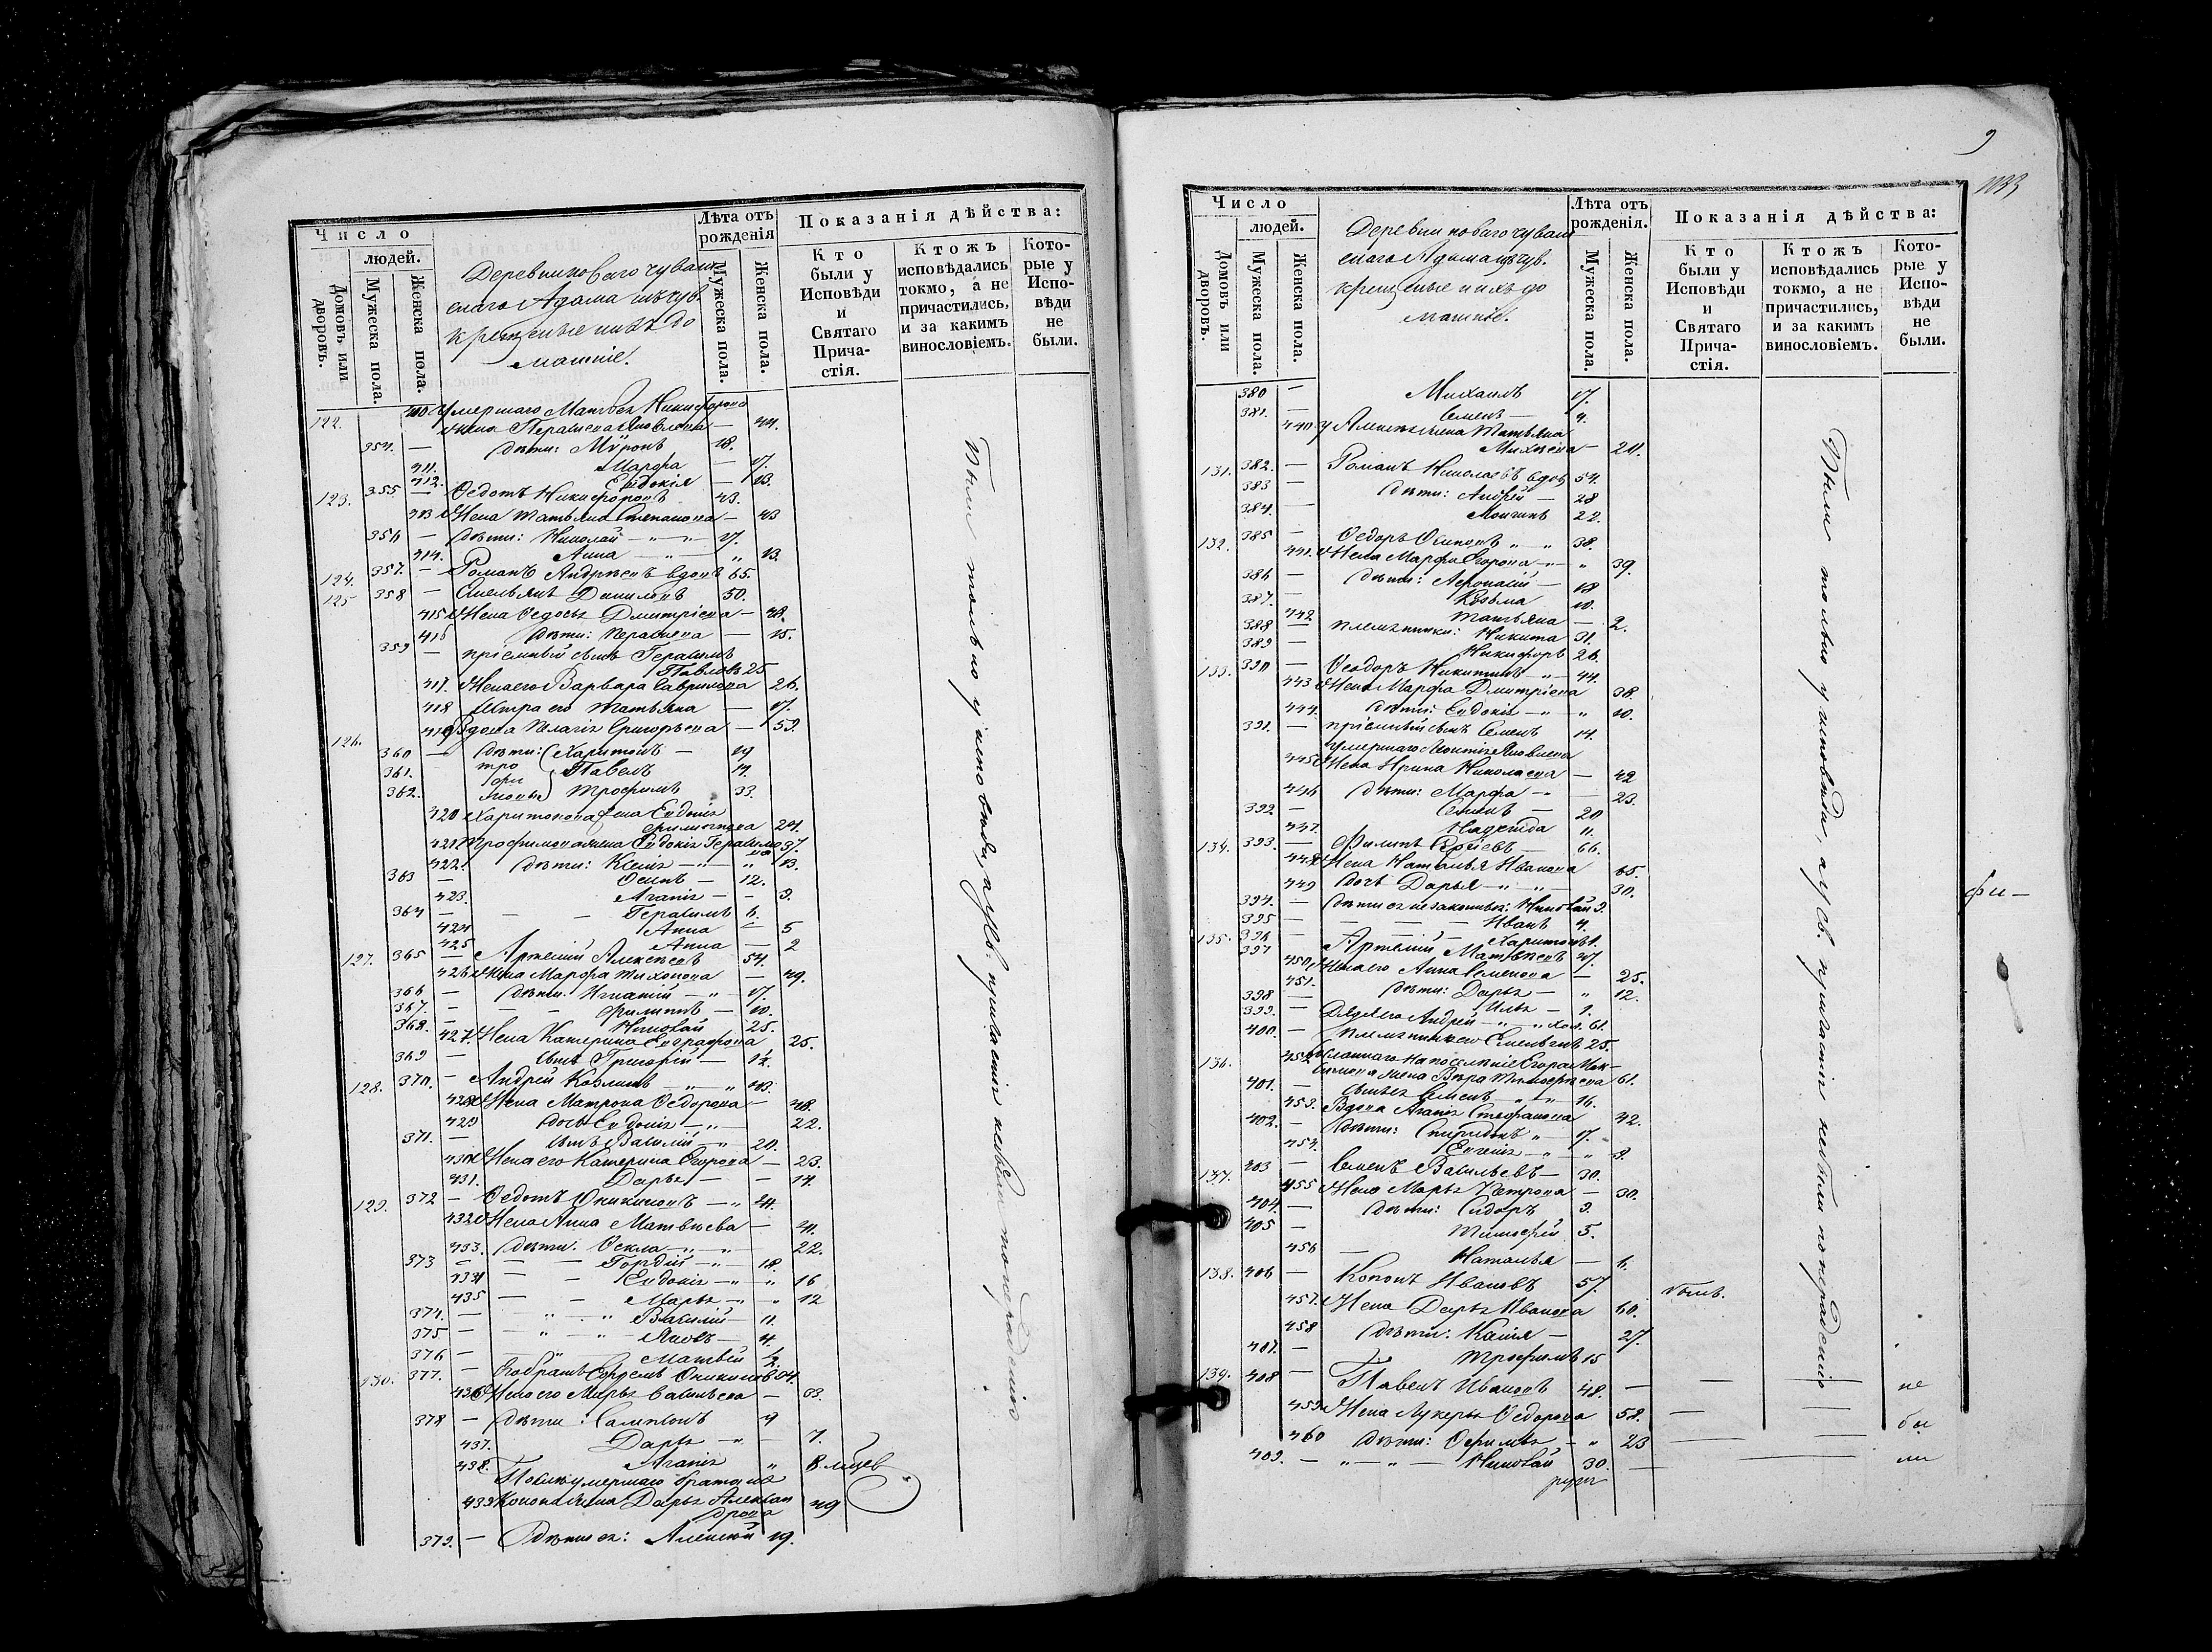 Число
людей.
Домовъ или дворовъ.
Мужеска пола.
Женска пола.
Деревни новаго чуваш
скаго Адама изъ чув.
крещеные и ихъ до
машніе.
Лѣта отъ рожденія
Мужеска пола.
Женска пола.
Показанія дѣйства:
Кто были у Исповѣди и Святаго Причастія.
Ктожъ исповѣдались токмо, а не причастились, и за какимъ винословіемъ.
Которые у Исповѣди не были.
122. 410 Умершаго Матвея Никифорова
жена Парасковья Яковлева — 44.
354. — дѣти: Миронъ 18.
411. Марфа — 17.
412. Евдокія — 13.
123. 355 — Ѳедотъ Никифоровъ 43.
413 Жена Татьяна Степанова — 43
356 — дѣти: Николай — 17.
414. Анна — 13.
124. 357. — Романъ Андреевъ вдовъ 65.
125 358 — Емельянъ Даниловъ 50.
415 Жена Ѳедосья Дмитріева — 48.
416 дѣти: — 15.
359 — пріемный сынъ Герасимъ
Павловъ 25
417. Жена его Варвара Гаврилова 26.
418 Сестра его Татьяна — 17.
126. 419 Вдова Пелагія Григорьева — 59.
360 — дѣти: Харитонъ — 19
361. Павелъ 14.
362. Трофимъ 33.
420 Харитонова жена Евдокія
Филиппова 24.
421 Трофимова жена Евдокія Герасимова 37.
422. дѣти: Ксенія — 13.
363 — Осипъ — 12.
423. Агапія — 9.
364 — Герасимъ 6.
424 Анна — 5
425 Анна — 2
127. 365 — Артемій Алексеевъ 54.
426 Жена Марфа Тихонова — 49.
366 — дѣти: Игнатій — 17.
367. — Филиппъ — 10.
368. Николай 25.
427. Жена Катерина Евграфова 25.
369 — сынъ Григорій —
128. 370. — Андрей Козминъ — 43.
428 Жена Матрона Ѳедорова — 48.
429 дочь Евдокія — 22.
371. — сынъ Василій — 20.
430 Жена его Катерина Егорова — 23.
431. Дарья — 14
129. 372 — Ѳедотъ — 41.
432 Жена Анна Матвеева — 41.
433. дѣти: Ѳекла — 22.
373 — Гордій — 18.
434 Евдокія — 16
435 Марья — 12
374. — Василій — 11.
375 — Яковъ — 4.
376 — Матвей
130. 377. —
436 Жена его Марья Васильева — 33.
378 — дѣти: Сампсонъ 9
437. Дарья — 7.
438. Агапія 8 мѣсяцев
умершаго брата
439 жена Дарья Алексан
дрова 49
379. — дѣти ея: Алексей 19.
Были только у исповѣди, а у Св. причастія не были по нерадѣнію
9
1033
Число
людей.
Домовъ или дворовъ.
Мужеска пола.
Женска пола.
Деревни новаго чуваш
скаго Адама изъ чув.
крещеные и ихъ до
машніе.
Лѣта отъ рожденія.
Мужеска пола.
Женска пола.
Показанія дѣйства:
Кто были у Исповѣди и Святаго Причастія.
Ктожъ исповѣдались токмо, а не причастились, и за какимъ винословіемъ.
Которые у Исповѣди не были.
380 — Михаилъ 17.
381. — Семенъ — 4.
440. у Алексея жена Татьяна
Михеева — 21.
131. 382. — Романъ Николаевъ вдовъ 54.
383 — дѣти: Андрей — 28
384. — 22.
132. 385 — Ѳедоръ Осиповъ 38.
441. Жена Марфа Егорова 39.
386 — дѣти: Афонасій — 18
387. — Козьма 10.
442 Татьяна — 2.
388 — племянники: Никита 31.
389 — Никифоръ 26.
133. 390 — Ѳеодоръ Никитинъ — 44.
443 Жена Марфа Дмитріева 38.
444. дѣти: Евдокія — 10.
391. — пріемный сынъ Семенъ 14.
умершаго Яковлева
445 Жена Ирина Николаева — 42
446 дѣти: Марфа — 23.
392 — Семенъ — 20
447. Надежда 11.
134. 393. — Филипъ Сергіевъ — 66.
448 Жена Наталья Иванова 65.
449 дочь Дарья — 30.
394. — дѣти ея незаконныя: Николай 9.
395 — Иванъ 4.
396 — Харитонъ 1.
135. 397 Артемій Матвеевъ 27.
450 Жена его Анна Семенова — 25.
451. дѣти: Дарья — 12.
398 — Илья — 1.
399. — Дядя его Андрей — хол. 61.
400. — племянникъ его Емельянъ 25.
136. 452 Сосланнаго на поселеніе Егора Мак-
симова жена Вѣра Тимофеева 61.
401. — сынъ ея Семенъ — 16.
453. Вдова Агапія Стефанова 42.
402. — дѣти: Спиридонъ — 17.
453. Евгенія — 9.
137. 403 — Семенъ Васильевъ — 30.
455 Жена Марья Петрова — 30.
404. — дѣти: Сидоръ 9.
405 — Тимофей 5.
456 — Наталья — 6.
138. 406 — Кононъ Ивановъ 57. былъ.
457. Жена Дарья Иванова 60.
458 дѣти: — 27.
407. — Трофимъ 15
139. 408 — Павелъ Ивановъ 48. — не
459 Жена Лукерья Ѳедорова 58. — бы
460 дѣти: — 23
409. — Николай 30. ли
Были только у исповѣди, а у Св. причастія не были по нерадѣнію
фи —